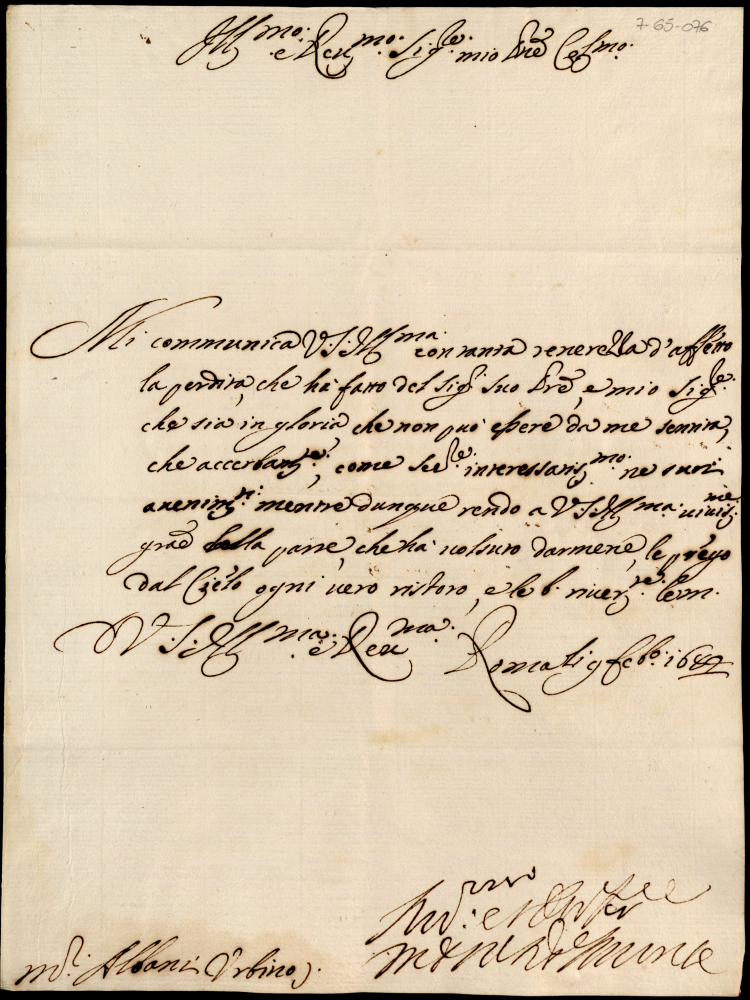 7-65-076
Ill.mo e Reu.mo Sig.re mio Prĕ Col.mo
Mi communica V.S. Ill.ma con tanta tenerezza d'affetto
la perdita, che hà fatto del Sig.r suo Prĕ, e mio Sig.re
che sia in gloria, che non può essere da me sentita,
che accerbam.te, come Ser.re interessatis.mo ne suoi
auenim.ti: mentre dunque rendo a V.S. Ill.ma uiuis.me
graē della parte, che hà uolsuto darmene, le prego
dal Cielo ogni uero ristoro, e le b. riuer.te le m.
V.S. Ill.ma e Reu.ma Roma li 9 feb.o 1684
m.r Albani Vrbino